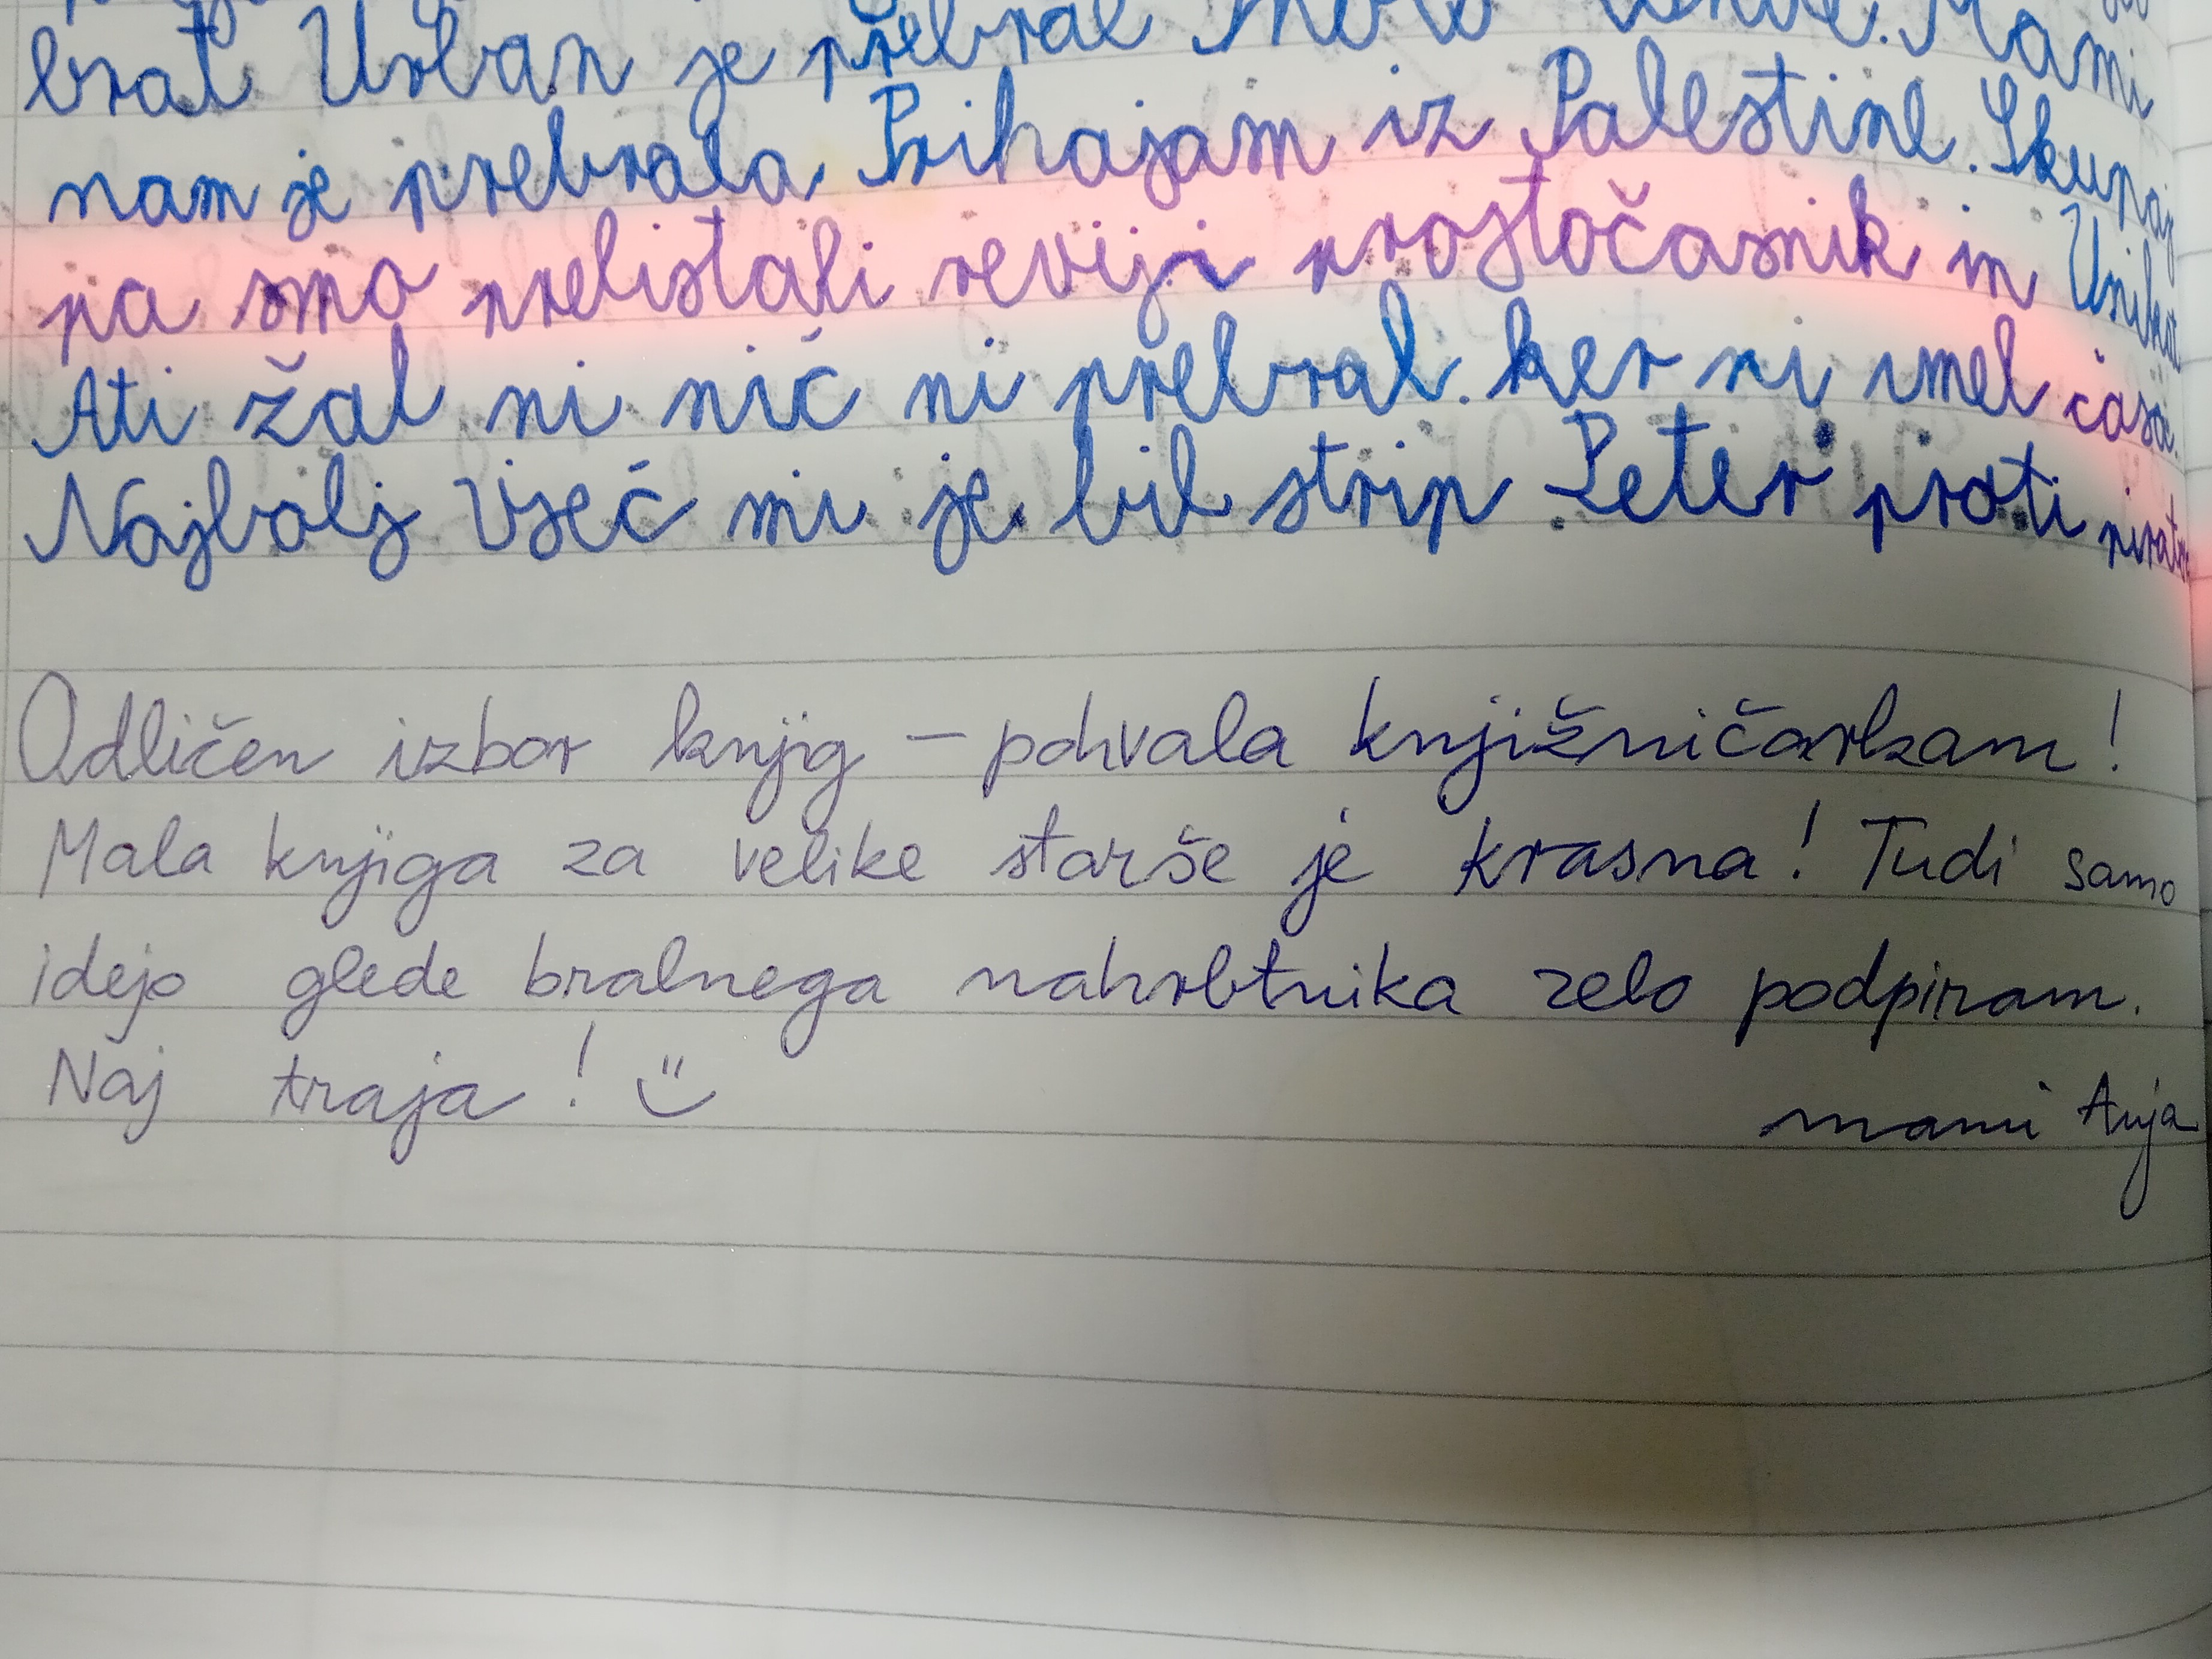 brat Urban je prebral Mami
nam je prebrala Prihajam iz Palestine. Skupaj
pa smo prelistali reviji prostočasnik in Unikat
Ati žal ni nič ni prebral. ker ni imel časa.
Najbolj všeč mi je bil strip Peter proti piratom
Odličen izbor knjig – pohvala knjižničarkam!
Mala knjiga za velike starše je krasna! Tudi samo
idejo glede bralnega nahrbtnika zelo podpiram.
Naj traja! :)
mami Anja